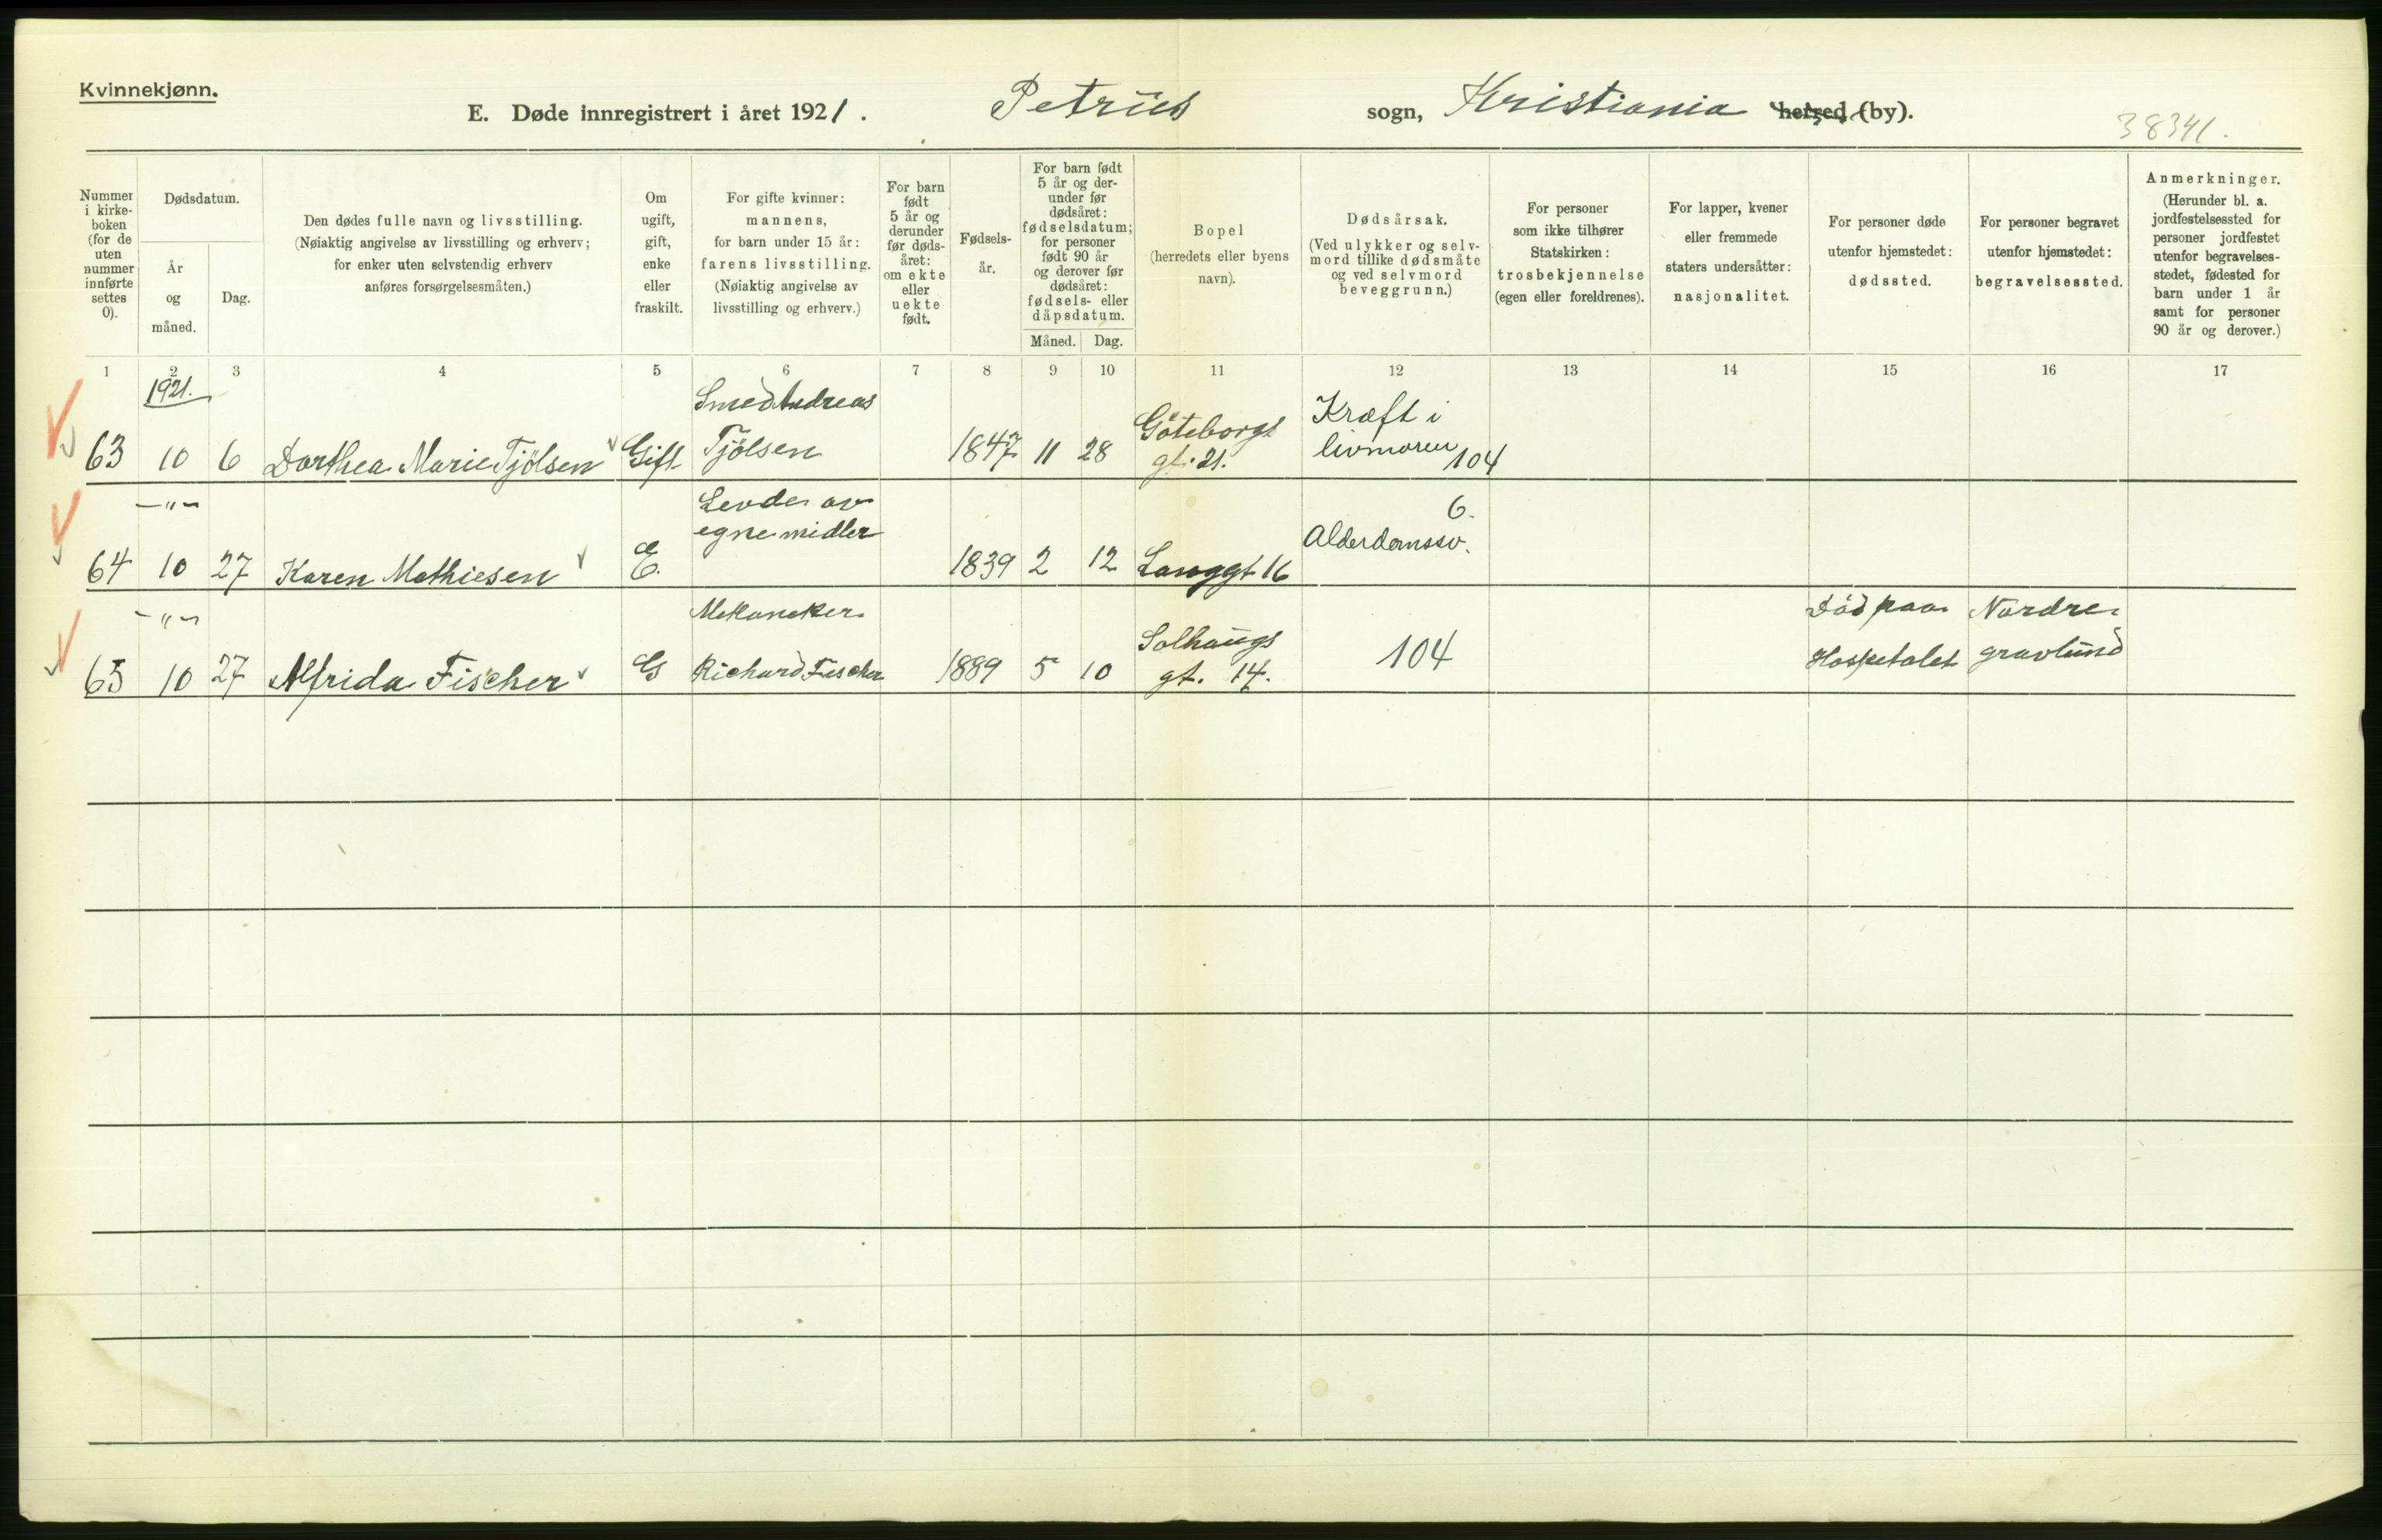 Kvinnekjønn.
E. Døde innregistrert i året 1921. Petrus sogn, Kristiania herred (by).
38341.
Nummer i kirkeboken (for de uten nummer innførte settes 0).
Dødsdatum.
År og måned.
Dag.
Den dødes fulle navn og livsstilling.
(Nøiaktig angivelse av livsstilling og erhverv;
for enker uten selvstendig erhverv
anføres forsørgelsesmåten.)
Om ugift, gift, enke eller fraskilt.
For gifte kvinner:
mannens,
for barn under 15 år:
farens livsstilling.
(Nøiaktig angivelse av
livsstilling og erhverv.)
For barn født 5 år og derunder før dødsåret: om ekte eller uekte født.
Fødselsår.
For barn født 5 år og derunder før dødsåret: fødselsdatum; for personer født 90 år og derover før dødsåret: fødsels- eller dåpsdatum.
Måned. Dag.
Bopel
(herredets eller byens
navn).
Dødsårsak.
(Ved ulykker og selvmord tillike dødsmåte
og ved selvmord
beveggrunn.)
For personer
som ikke tilhører
Statskirken:
trosbekjennelse
(egen eller foreldrenes).
For lapper, kvener
eller fremmede
staters undersåtter:
nasjonalitet.
For personer døde
utenfor hjemstedet:
dødssted.
For personer begravet
utenfor hjemstedet:
begravelsessted.
Anmerkninger.
(Herunder bl. a.
jordfestelsessted for
personer jordfestet
utenfor begravelsesstedet, fødested for
barn under 1 år
samt for personer
90 år og derover.)
1 2 3 4 5 6 7 8 9 10 11 12 13 14 15 16 17
1921.
63 10 6 Dorthea Marie Tjölsen Gift Smed Andreas Tjölsen 1847 11 28 Göteborgs gt. 21. Kræft i livmoren 104
—"—
64 10 27 Karen Mathiesen E. Levde av egne midler 1839 2 12 Langgt 16 Alderdomssv. 6.
—"—
65 10 27 Alfrida Fischer G Mekaneker Richard Fischer 1889 5 10 Solhaugs gt. 14. 104 Död paa Hospetalet Nordre gravlund